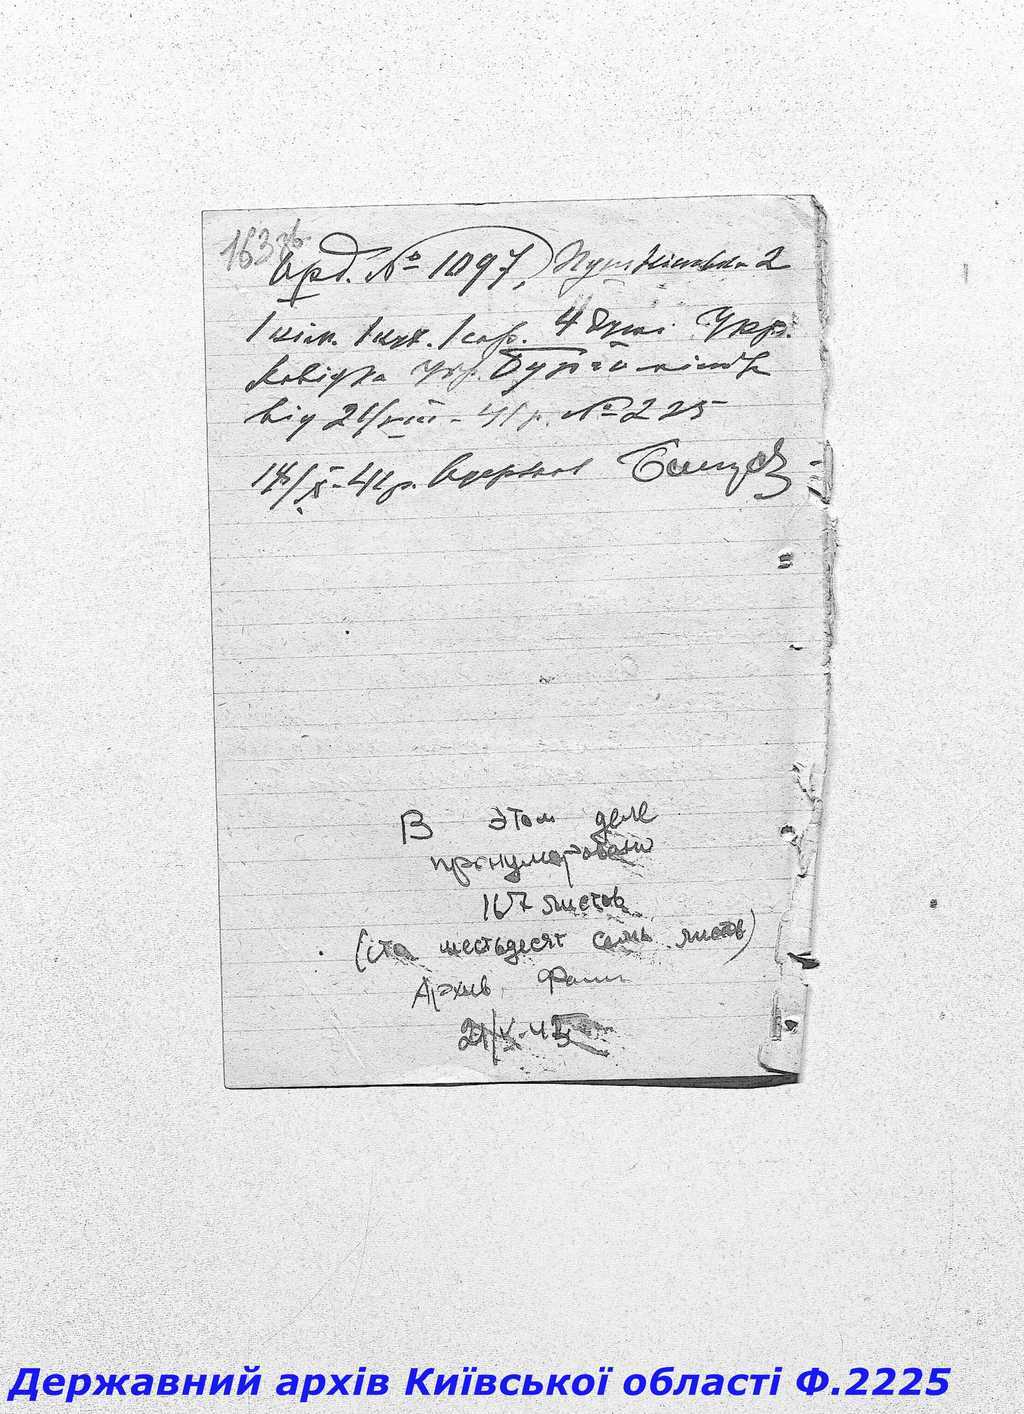 163 зв.
Орд. № 1097, Пушкінська 2
1 кім. 1 кух. 1 сар. 4 душі Укр.
Довідка Укр.
від 21/VIII - 41 р. № 225
14/X - 41 р. Одержав
В этом деле
пронумеровано
167 листов
(сто шестьдесят семь листов)
Архив.
21/X-45
Державний архів Київської області Ф.2225